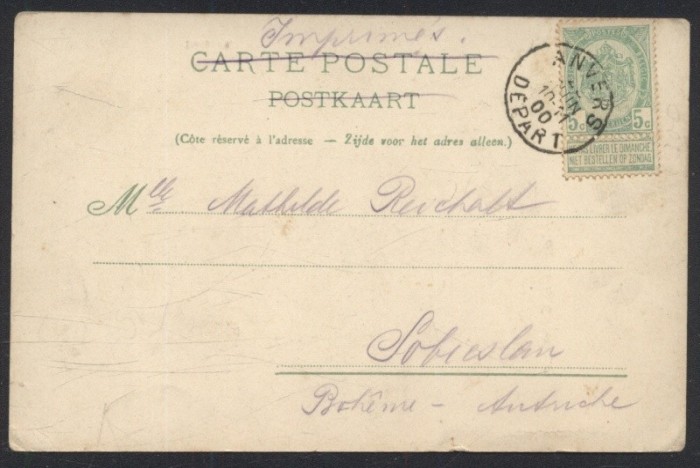 Imprimés.
CARTE POSTALE
POSTKAART
(Côte réservé à l'adresse — Zijde voor het adres alleen.)
Mlle Mathilde Reichalt
Sobieslau
Bohême - Autriche
ANVERS
JUIN
10-11
00
DEPART
5c 5c
NE PAS LIVRER LE DIMANCHE
NIET BESTELLEN OP ZONDAG